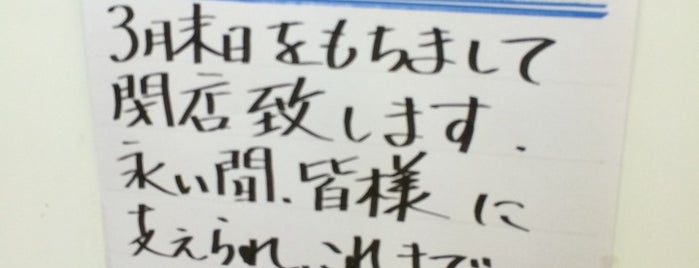 3月末日をもちまして
閉店致します.
永い間、皆様に
支えられ、これまで